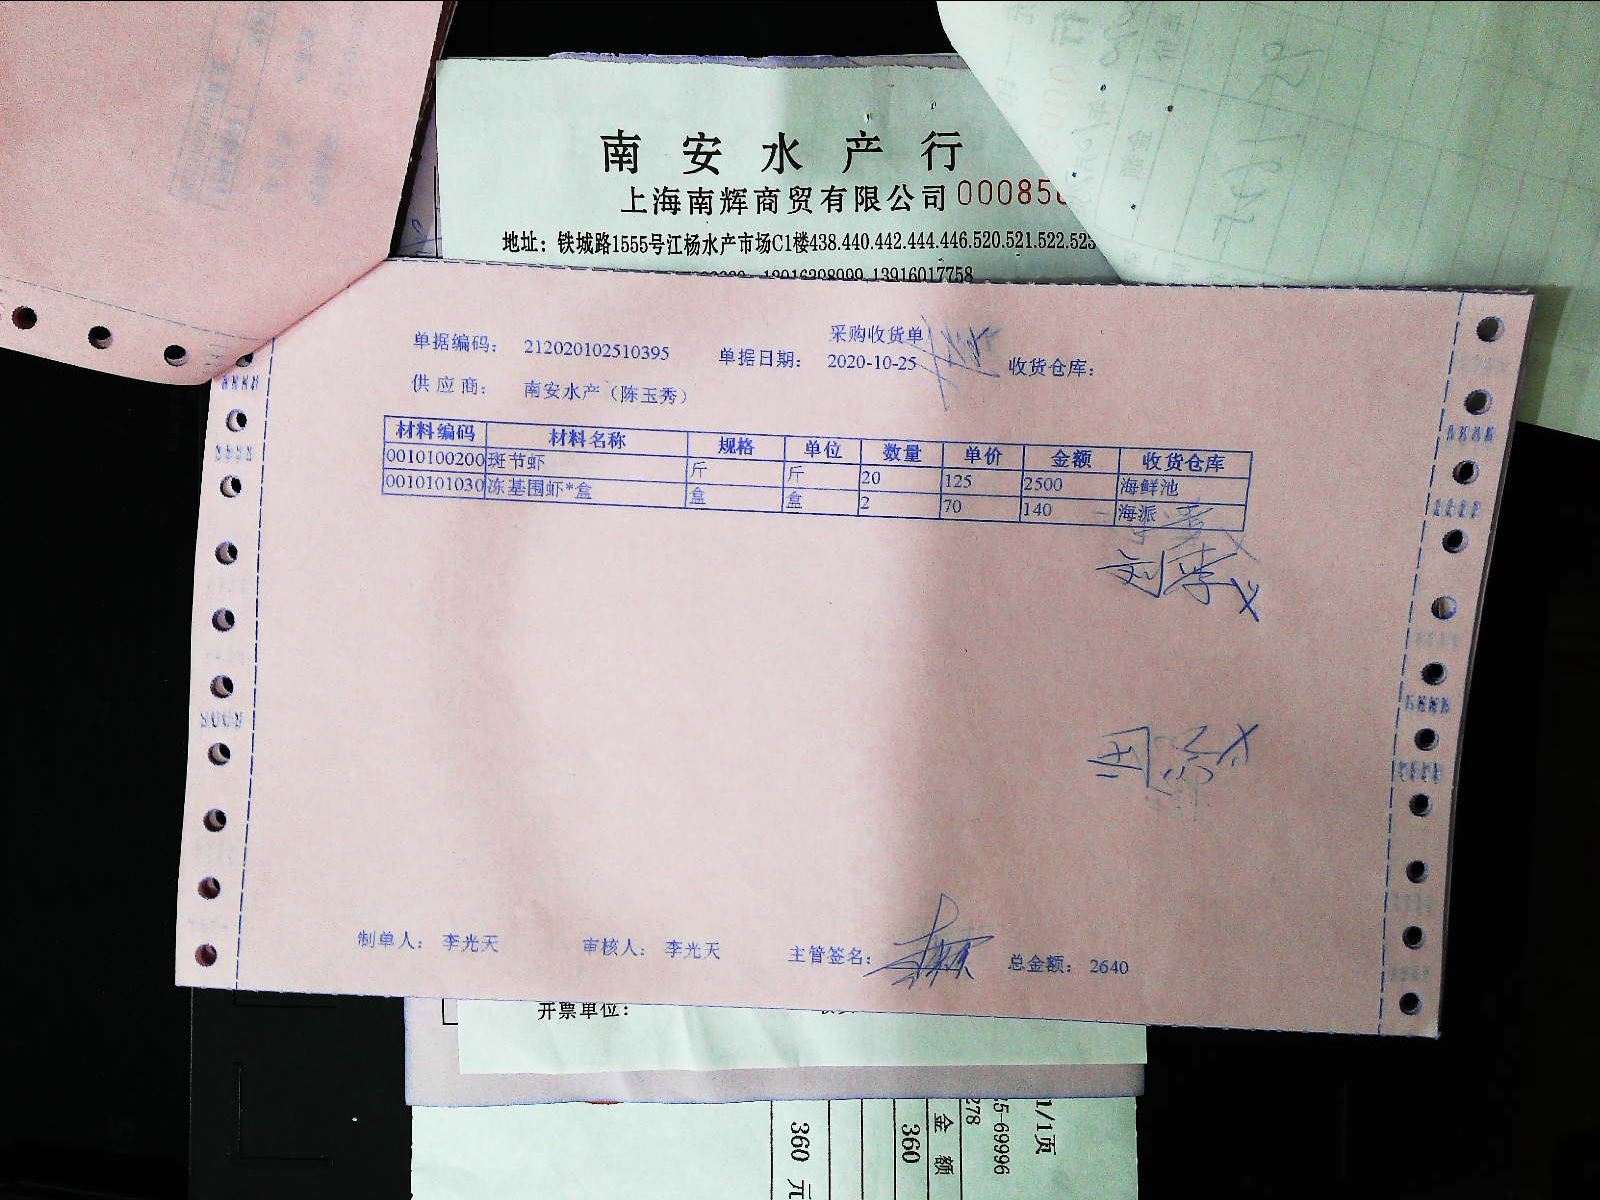 南安水产行
上海南辉商贸有限公司 00085
地址：铁城路1555号江杨水产市场C1楼438.440.442.444.446.520.521.522.523
13016208999 13916017758
采购收货单
单据编码： 212020102510395 单据日期： 2020-10-25 收货仓库：
供 应 商： 南安水产（陈玉秀）
材料编码 材料名称 规格 单位 数量 单价 金额 收货仓库
0010100200 斑节虾 斤 斤 20 125 2500 海鲜池
0010101030 冻基围虾*盒 盒 盒 2 70 140 海派
制单人： 李光天 审核人： 李光天 主管签名： 总金额： 2640
开票单位：
1/1页
5-69996
278
金 额
360
360 元